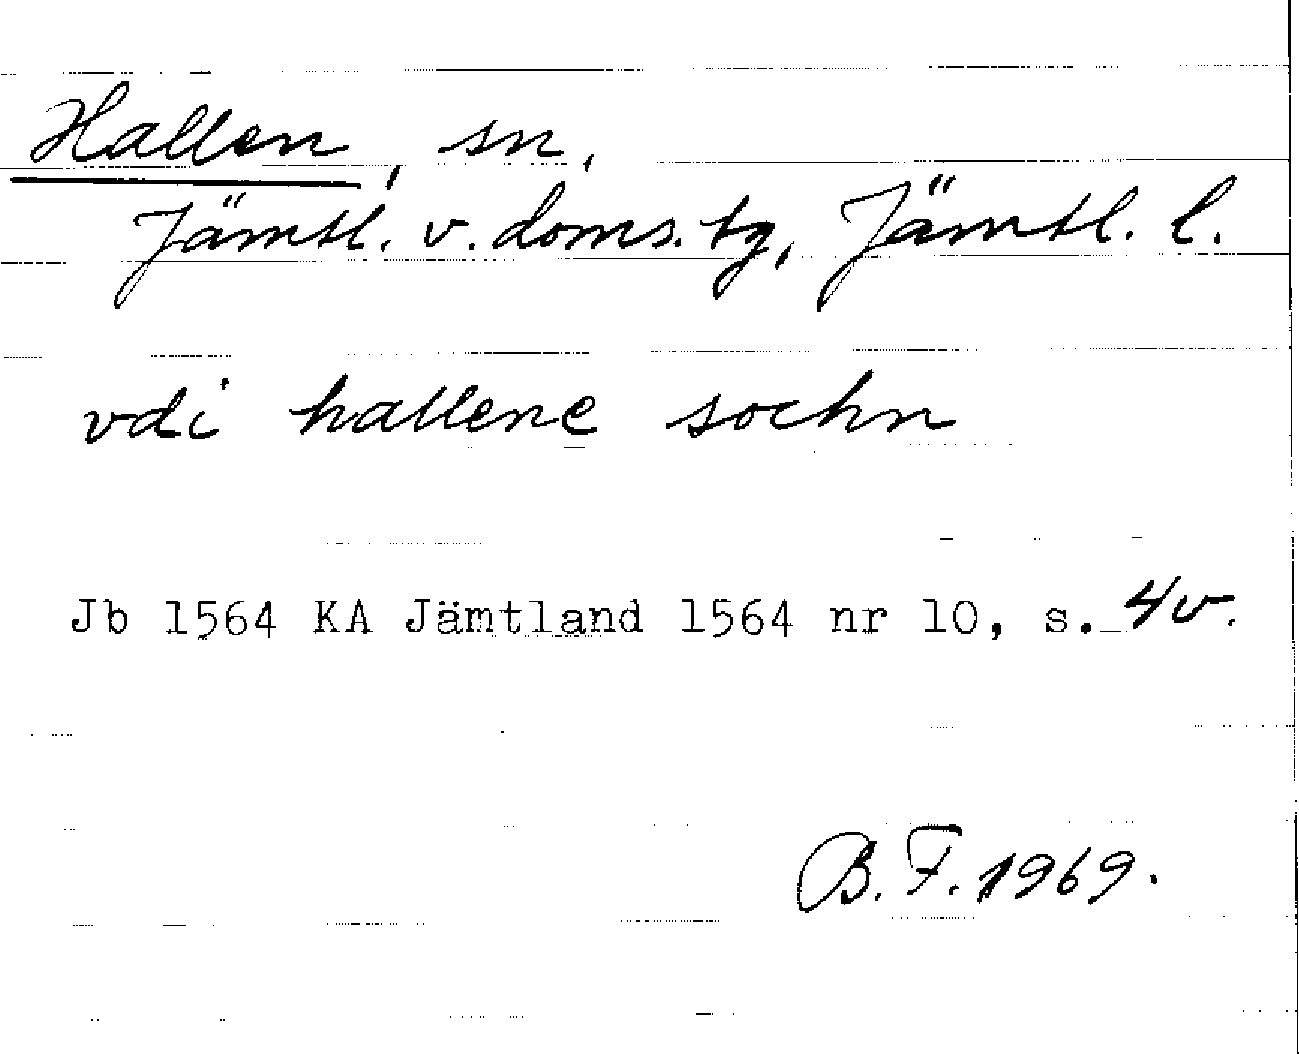 Hallen, sn,
Jämtl. v. doms. tg, Jämtl. l.
vdi hallene sochn
Jb 1564 KA Jämtland 1564 nr 10, s. 4v.
B. F. 1969.